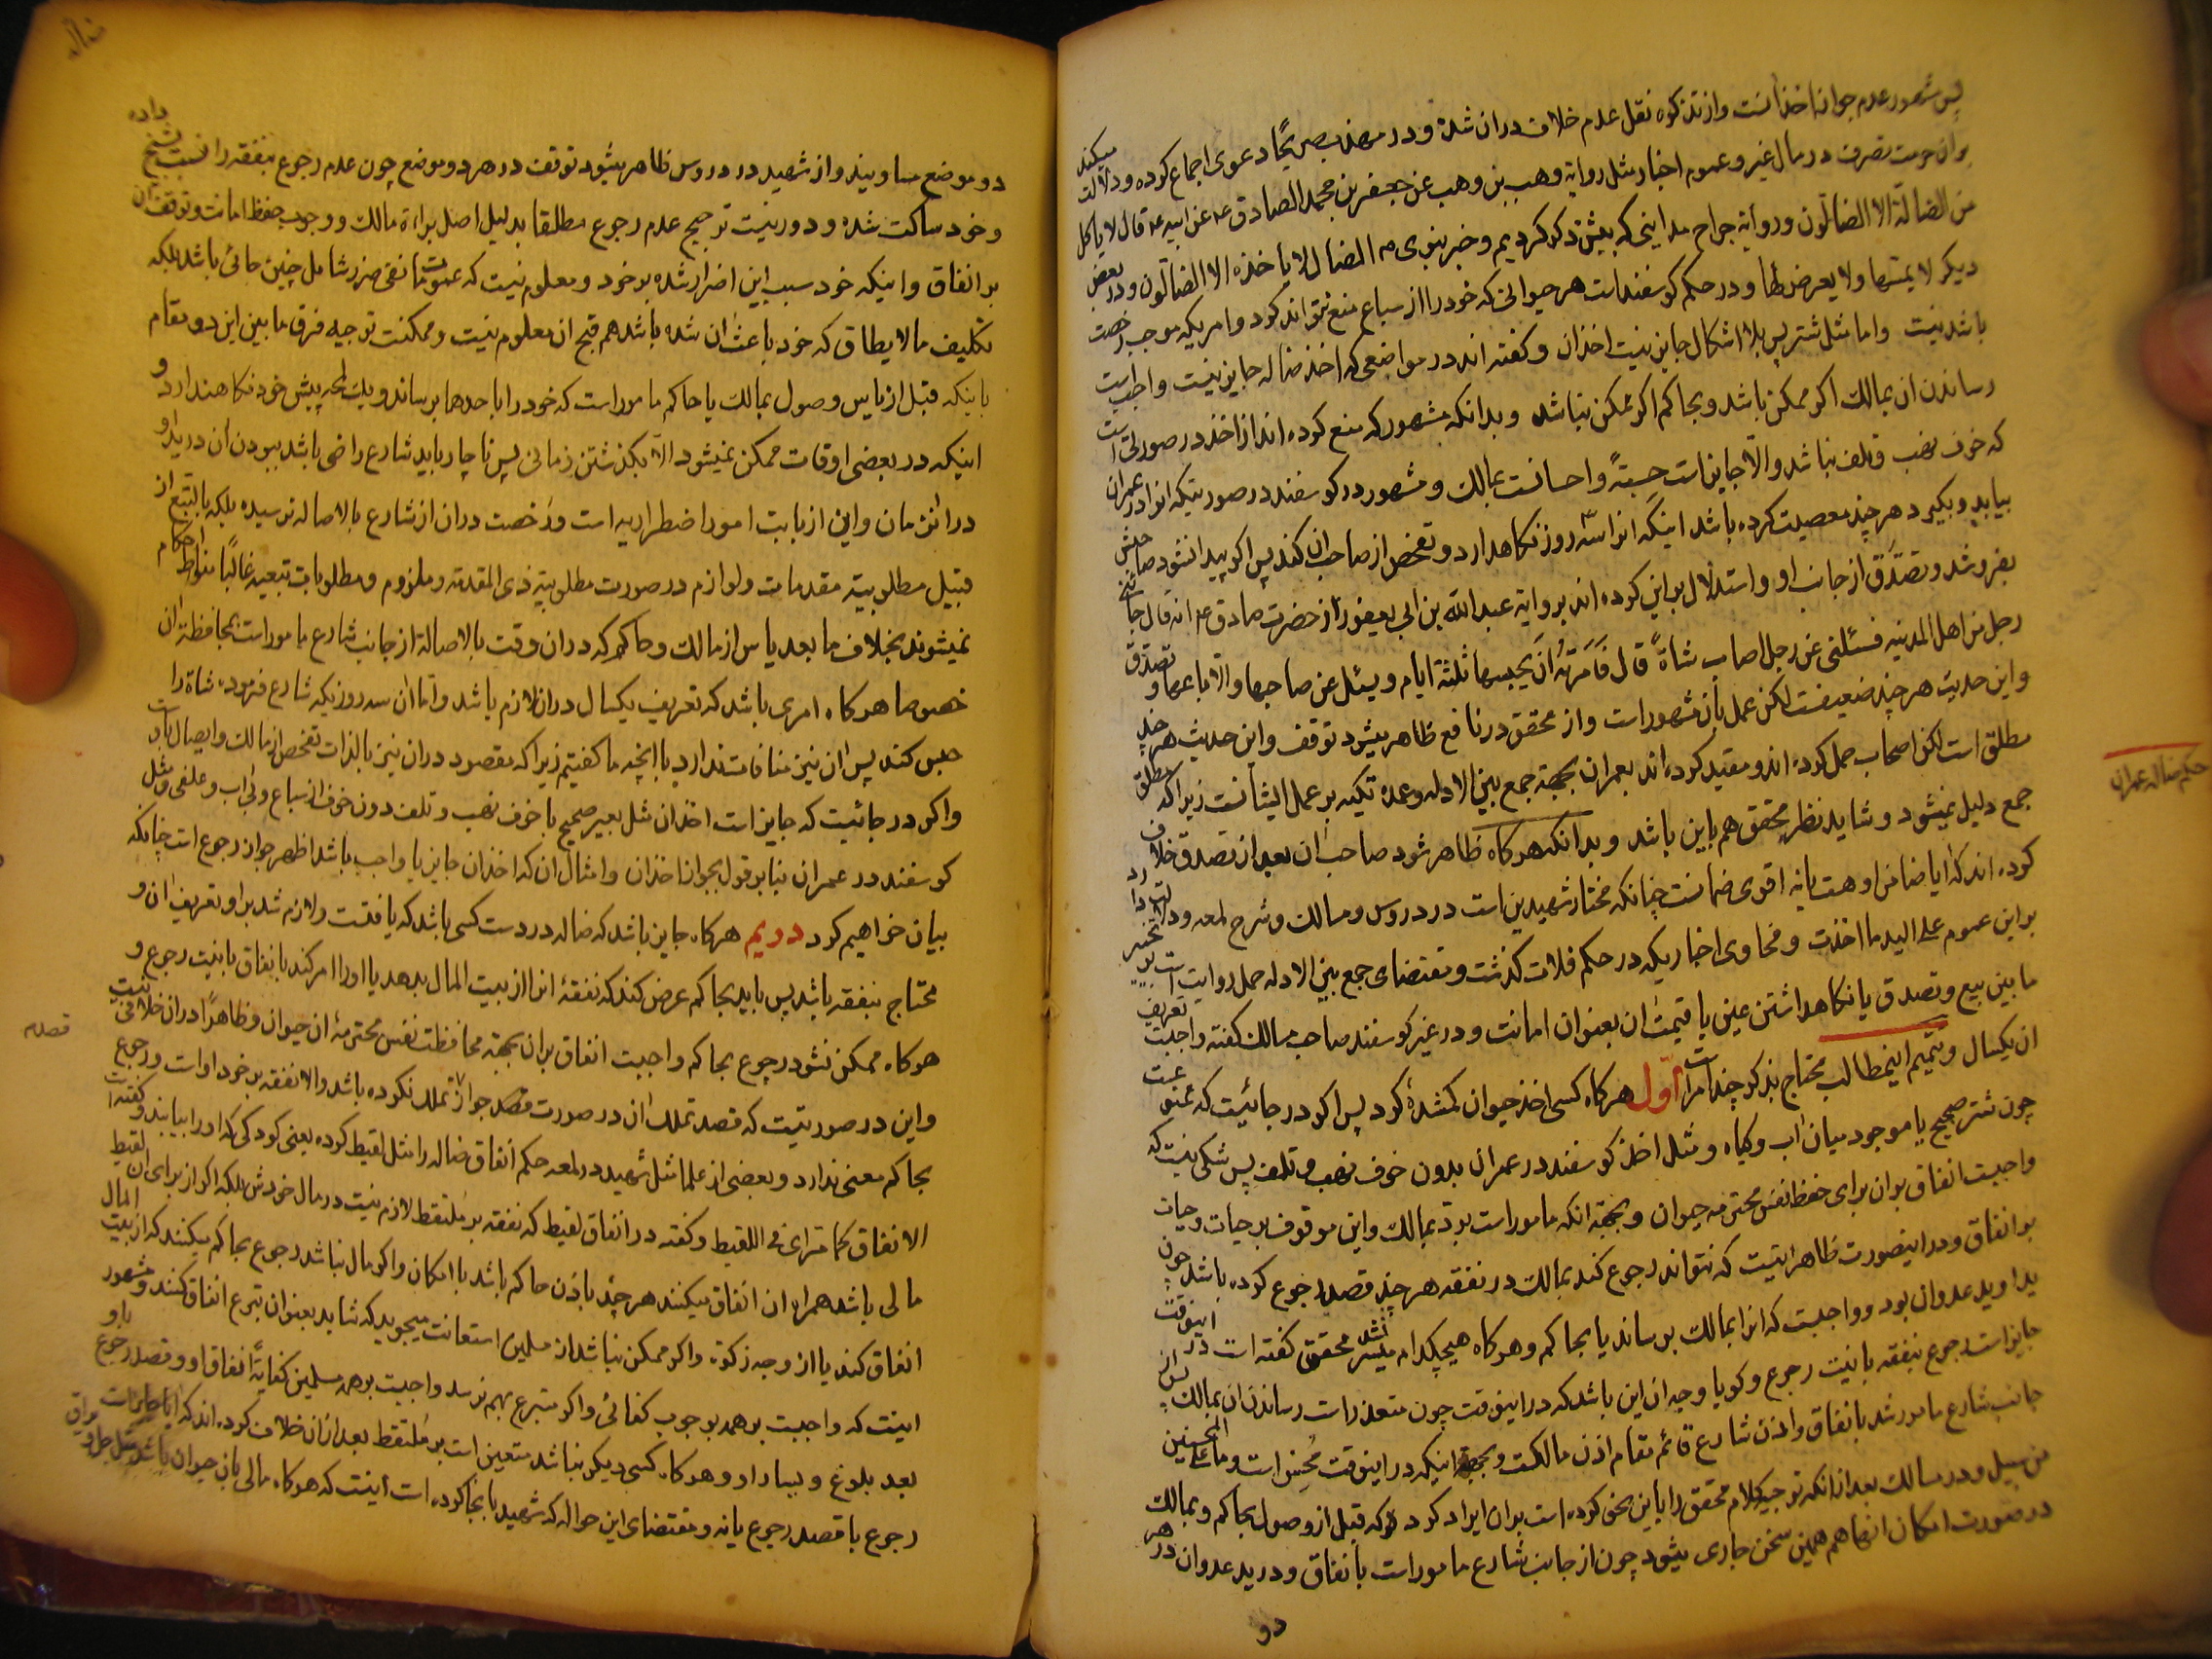 پس مشهور عدم جواز اخذ انست واز تذکره نقل عدم خلاف دران شده و در مهذب صریحًا دعوی اجماع کرده و دلالت میکند
بران حرمت تصرف در مال غیر و عموم اخبار مثل روایة وهب بن وهب عن جعفر بن محمد الصادق عن ابیه قال لا یاکل
من الضالة الا الضالون و روایة جراح مداینی که پیش ذکر کردیم و خبر نبوی الضال لا یاخذه الا الضالون و در بعض
دیکر لا یمسها ولا یعرض لها و در حکم کوسفند است هر حیوانی که خود را از سباع منع نتواند کرد و امریکه موجب رخصت
باشد نیست واما مثل شتر پس بلا اشکال جایز نیست اخذ ان و کفته اند در مواضعی که اخذ ضاله جایز نیست واجب است
رساندن ان بمالک اکر ممکن باشد و بحاکم اکر ممکن نباشد وبدانکه مشهور که منع کرده اند از اخذ در صورتی است
که خوف نهب و تلف نباشد والّا جایز است حسبةً و احسانست بمالک و مشهور در کوسفند در صورتیکه انرا در عمران
بیابد و بکیرد هر چند معصیت کرده باشد اینکه انرا سه روز نکاهدارد و تفحص از صاحب ان کند پس اکر پیدا نشود صاحبش
بفروشد و تصدّق از جانب او و استدلال بر این کرده اند بروایة عبد الله بن ابی یعفور از حضرت صادق انه قال جائنی
رجل من اهل المدینه فسئلنی عن رجل اصاب شاة قال فامرته ان یحبسها ثلثة ایام و یسئل عن صاحبها والا باعها و تصدق
واین حدیث هر چند ضعیفست لکن عمل بان مشهور است و از محقق در نافع ظاهر میشود توقف واین حدیث هر چند
مطلق است لکن اصحاب حمل کرده اند و مقید کرده اند بعمران بجهة جمع بین الادله و عمده تکیه بر عمل ایشانست زیرا که مطلق
جمع دلیل نمیشود و شاید نظر محقق هم باین باشد وبدانکه هرکاه ظاهر شود صاحب ان بعد از تصدق خلاف
کرده اند که ایا ضامن او هست یا نه اقوی ضمانست چنانکه مختار شهیدین است در دروس و مسالک و شرح لمعه و دلالت دارد
بر این عموم علی الید ما اخذت و فحاوی اخباریکه در حکم فلات کذشت و مقتضای جمع بین الادله حمل روایت است بر تخییر
ما بین بیع و تصدق یا نکاهداشتن عین یا قیمت ان بعنوان امانت و در غیر کوسفند صاحب مسالک کفته واجبست تعریف
ان یکسال و تتمیم اینمطالب محتاج بذکر چند امر است اوّل هرکاه کسی اخذ حیوان کمشدهٔ کرد پس اکر در جائیست که ممنوعست
چون شتر صحیح یا موجود میان اب و کیاه و مثل اخذ کوسفند در عمران بدون خوف نهب و تلف پس شکی نیست که
واجبست انفاق بر ان برای حفظ نفس محترمه حیوان و بجهة انکه مامور است بردّ بمالک واین موقوف بر حیات و حیات
بر انفاق و در اینصورت ظاهر اینست که نتواند رجوع کند بمالک در نفقه هر چند قصد رجوع کرده باشد چون
ید او ید عدوان بود و واجبست که انرا بمالک برساند یا بحاکم و هرکاه هیچکدام میسّر نشد محقق کفته است در اینوقت
جایز است رجوع بنفقه با نیت رجوع و کویا وجه ان این باشد که در اینوقت چون متعذر است رساندن ان بمالک پس از
جانب شارع مامور شد بانفاق و اذن شارع قائم مقام اذن مالکست و بجهة اینکه در اینوقت مُحسن است وما علی المحسنین
من سبیل و در مسالک بعد از انکه توجیه کلام محقق را باین نحو کرده است بران ایراد کرده که قبل از وصول بحاکم و بمالک
در صورت امکان انها هم همین سخن جاری میشود چون از جانب شارع مامور است بانفاق و در ید عدوان در هر
دو
حکم ضاله عمران
دو موضع مساویند و از شهید در دروس ظاهر میشود توقف در هر دو موضع چون عدم رجوع بنفقه را نسبت بشیخ داده
و خود ساکت شده و دور نیست ترجیح عدم رجوع مطلقا بدلیل اصل براءة مالک و وجوب حفظ امانت و توقف ان
بر انفاق و اینکه خود سبب این اضرار شده بر خود و معلوم نیست که عمومات نفی ضرر شامل چنین جائی باشد بلکه
تکلیف ما لا یطاق که خود باعث ان شده باشد هم قبح ان معلوم نیست و ممکنست توجیه فرق ما بین این دو مقام
باینکه قبل از یاس وصول بمالک یا حاکم مامور است که خود را باحدهما برساند و یک لمحه پیش خود نکاه ندارد و
اینکه در بعضی اوقات ممکن نمیشود الّا بکذشتن زمانی پس ناچار باید شارع راضی باشد ببودن ان در ید او
در انزمان واین از بابت امور اضطراریه است و رخصت دران از شارع بالاصاله نرسیده بلکه بالتبع از
قبیل مطلوبیة مقدمات و لوازم در صورت مطلوبیة ذی المقدمه و ملزوم و مطلوبات تبعیه غالبًا مناط احکام
نمیشوند بخلاف ما بعد یاس از مالک و حاکم که در ان وقت بالاصالة از جانب شارع مامور است بمحافظة ان
خصوصا هرکاه امری باشد که تعریف یکسال دران لازم باشد و اما ان سه روزیکه شارع فرموده شاة را
حبس کند پس ان نیز منافات ندارد با انچه ما کفتیم زیرا که مقصود دران نیز بالذات تفحص از مالک و ایصال باوست
واکر در جائیست که جایز است اخذ ان مثل بعیر صحیح با خوف نهب و تلف دون خوف از سباع و بی اب و علفی و مثل
کوسفند در عمران بنابر قول بجواز اخذ ان و امثال ان که اخذ ان جایز یا واجب باشد اظهر جواز رجوع است چنانکه
بیان خواهیم کرد دویم هرکاه جایز باشد که ضاله در دست کسی باشد که یافتست و لازم شد بر او تعریف ان و
محتاج بنفقه باشد پس باید بحاکم عرض کند که نفقهٔ انرا از بیت المال بدهد یا او را امر کند بانفاق با نیت رجوع و
هرکاه ممکن نشود رجوع بحاکم واجبست انفاق بر ان بجهة محافظت نفس محترمهٔ ان حیوان و ظاهرًا دران خلافی نیست
واین در صورتیست که قصد تملک ان در صورت جواز تملک نکرده باشد والا نفقه بر خود او است و رجوع
بحاکم معنی ندارد و بعضی از علما مثل شهید در لمعه حکم انفاق ضاله را مثل لقیط کرده یعنی کودکی که او را بیابند و کفته است
الانفاق کما مر فی اللقیط و کفته در انفاق لقیط که نفقه بر ملتقط لازم نیست در مال خودش بلکه اکر از برای ان لقیط
مالی باشد همراه ان انفاق میکنند هر چند باذن حاکم باشد با امکان و اکر مال نباشد رجوع بحاکم میکنند که از بیت المال
انفاق کند یا از وجه زکوة و اکر ممکن نباشد از مسلمین استعانت میجوید که شاید بعنوان تبرع انفاق کنند و مشهور
اینست که واجبست بر همه بوجوب کفائی و اکر متبرع بهم نرسد واجبست بر همه مسلمین کفایةً انفاق او و قصد رجوع باو
بعد بلوغ و یسار او و هرکاه کسی دیکر نباشد متعین است بر ملتقط بعد از ان خلاف کرده اند که ایا جایز است
رجوع با قصد رجوع یا نه و مقتضای این حواله که شهید باینجا کرده است اینست که هرکاه مالی بان حیوان باشد مثل جل و یراق
قصدم